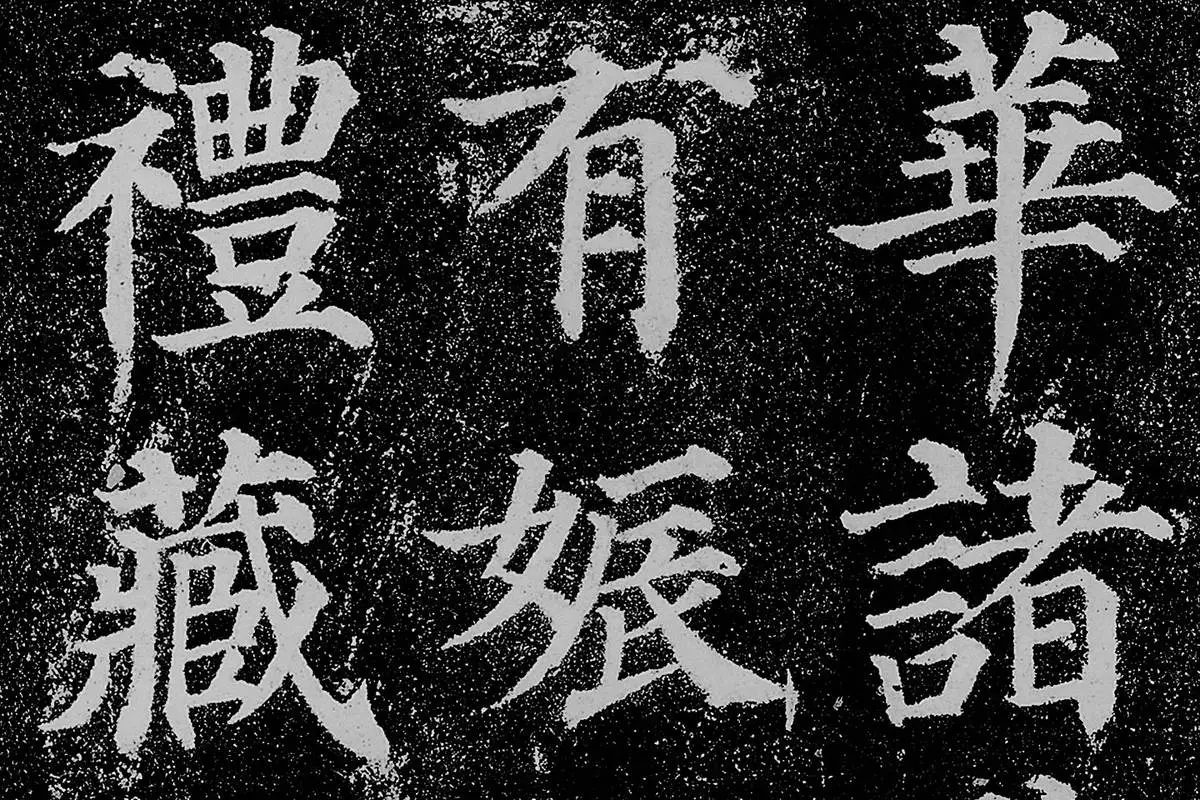 華諸
有娠
禮藏